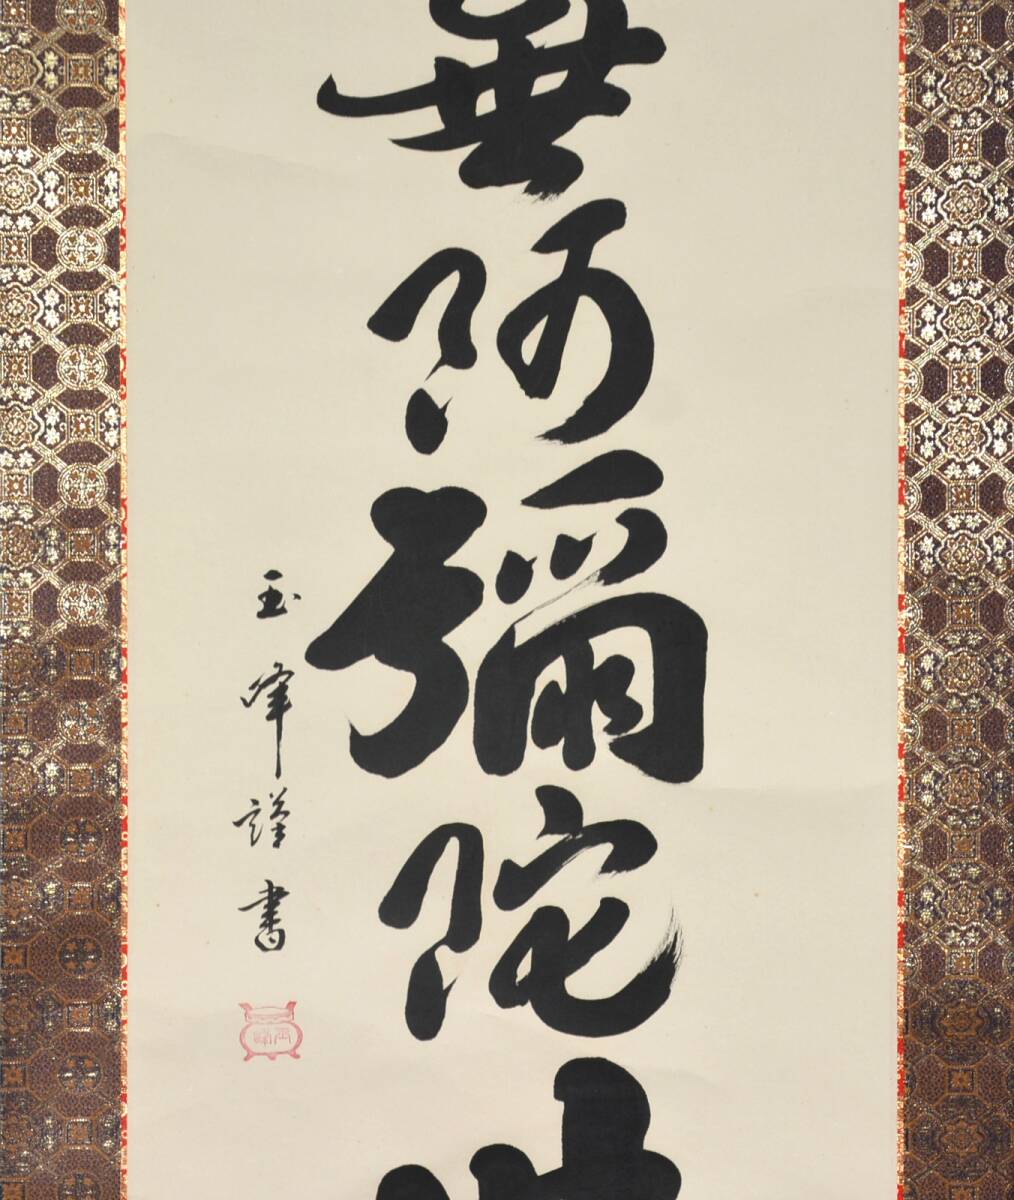 無阿彌陀
玉峰謹書